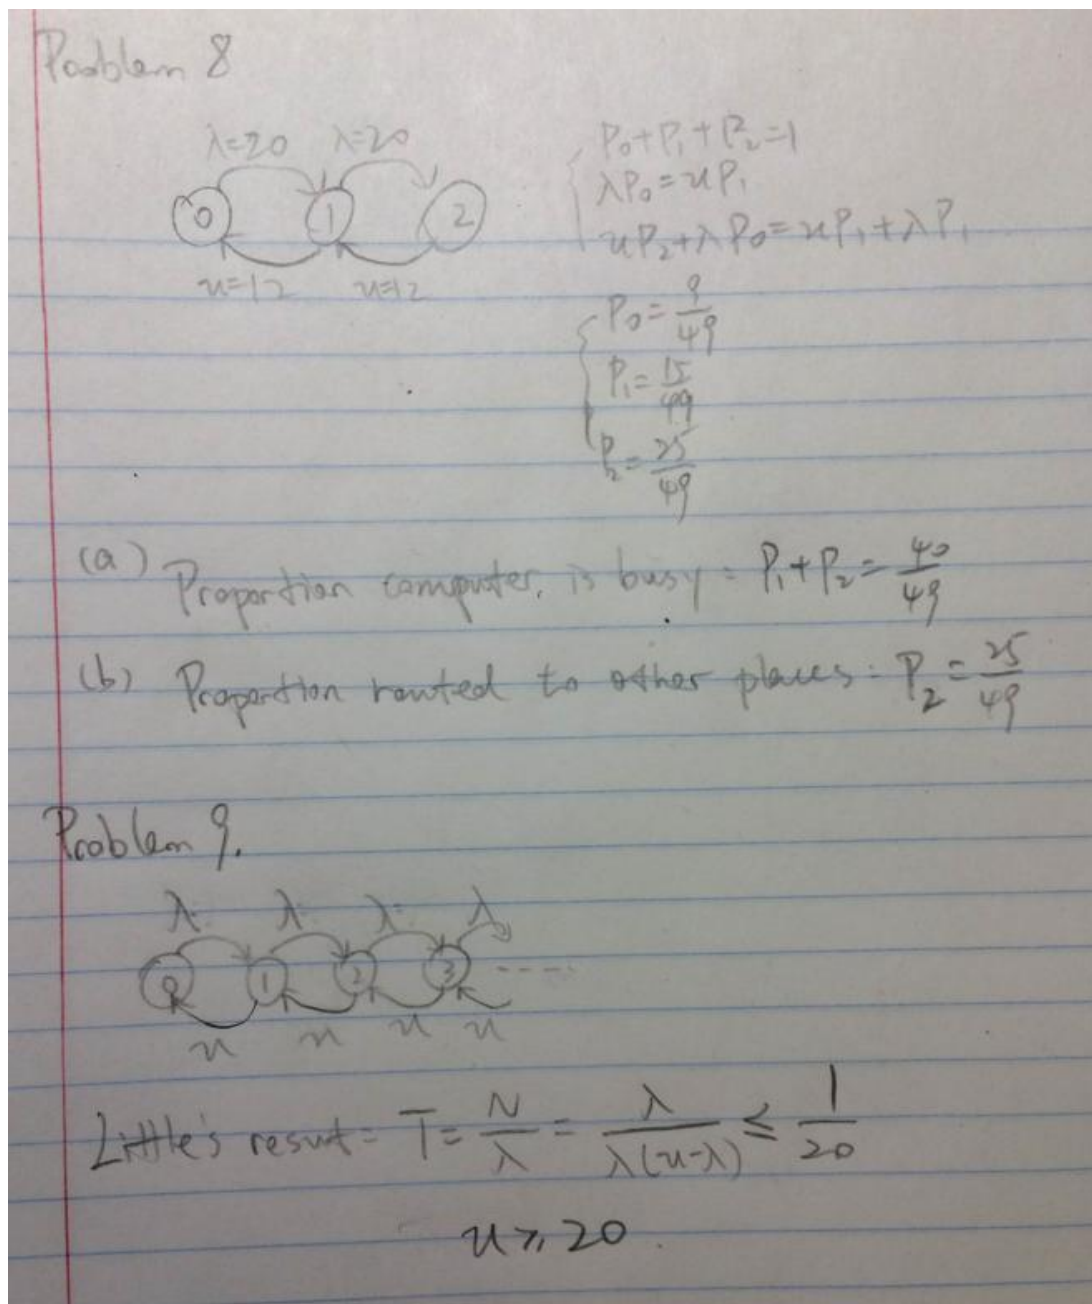 Problem 8
λ=20 λ=20
0 1 2
u=12 u=12
P₀+P₁+P₂=1
λP₀=uP₁
uP₂+λP₀=uP₁+λP₁
P₀=9/49
P₁=15/49
P₂=25/49
(a) Proportion computer is busy: P₁+P₂=40/49
(b) Proportion routed to other places: P₂=25/49
Problem 9.
λ λ λ λ
0 1 2 3 ----
u u u u
Little's result: T̅=N/λ=λ/λ(u-λ)≤1/20
u≥20.